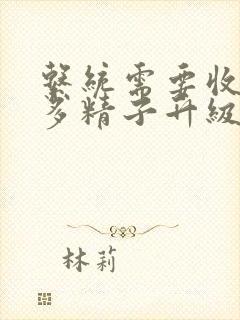 繫統需要收
多精子升級
林莉